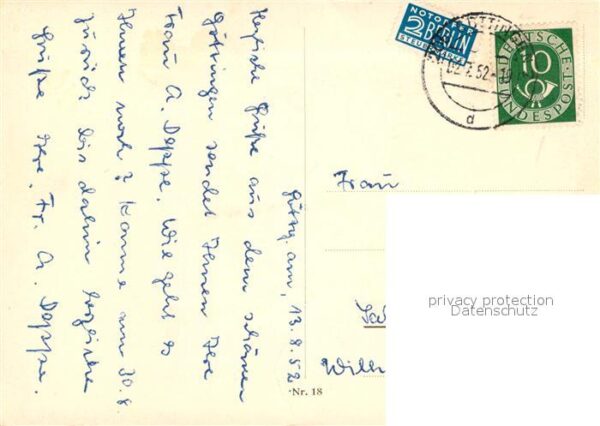 Götting. am, 13.8.52
Herzliche Grüße aus dem schönen
Göttingen sendet Ihnen Ihre
Frau A. Deppe. Wie geht es
Ihnen noch? Komme am 30.8
zurück bis dahin herzliche
Grüße Ihre, Fr. A. Deppe.
NOTOPFER
2 BERLIN
STEUERMARKE
GÖTTINGEN
52
d
DEUTSCHE
10
BUNDESPOST
Frau
Will
Nr. 18
privacy protection
Datenschutz